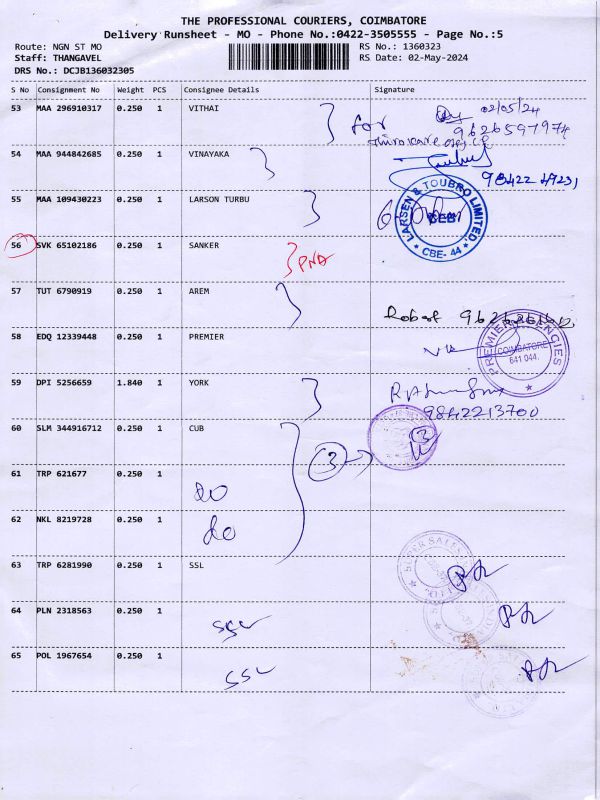 THE PROFESSIONAL COURIERS, COIMBATORE
Delivery Runsheet - MO - Phone No.:0422-3505555 - Page No.:5
Route: NGN ST MO
RS No.: 1360323
Staff: THANGAVEL
RS Date: 02-May-2024
DRS No.: DCJB136032305
S No Consignment No Weight PCS Consignee Details Signature
53 MAA 296910317 0.250 1 VITHAI
for 02/05/24
9626597974
54 MAA 944842685 0.250 1 VINAYAKA
55 MAA 109430223 0.250 1 LARSON TURBU
LARSEN & TOUBRO LIMITED.
CBE- 44
56 SVK 65102186 0.250 1 SANKER
PNA
57 TUT 6790919 0.250 1 AREM
Robert
58 EDQ 12339448 0.250 1 PREMIER
PREMIER AGENCIES
COIMBATORE
641 044.
59 DPI 5256659 1.840 1 YORK
9842213700
60 SLM 344916712 0.250 1 CUB
3
3
61 TRP 621677 0.250 1
do
62 NKL 8219728 0.250 1
do
63 TRP 6281990 0.250 1 SSL
64 PLN 2318563 0.250 1
SSL
65 POL 1967654 0.250 1
SSL